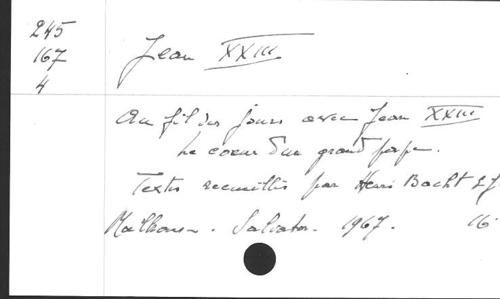 245
167
4
Jean XXIII
Au fil des jours avec Jean XXIII
Le coeur d'un grand pape.
Textes recueillis par Henri Bacht S.J.
Mulhouse. Salvator. 1967. 16°